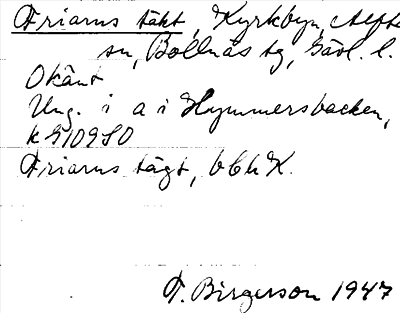 Friarns täkt, Kyrkbyn, Alfta
sn, Bollnäs tg, Gävl. l.
Okänt
Ung. i a i Hammersbacken,
k 9109S0
Friarns tägt, bbh K.
T. Birgerson 1947